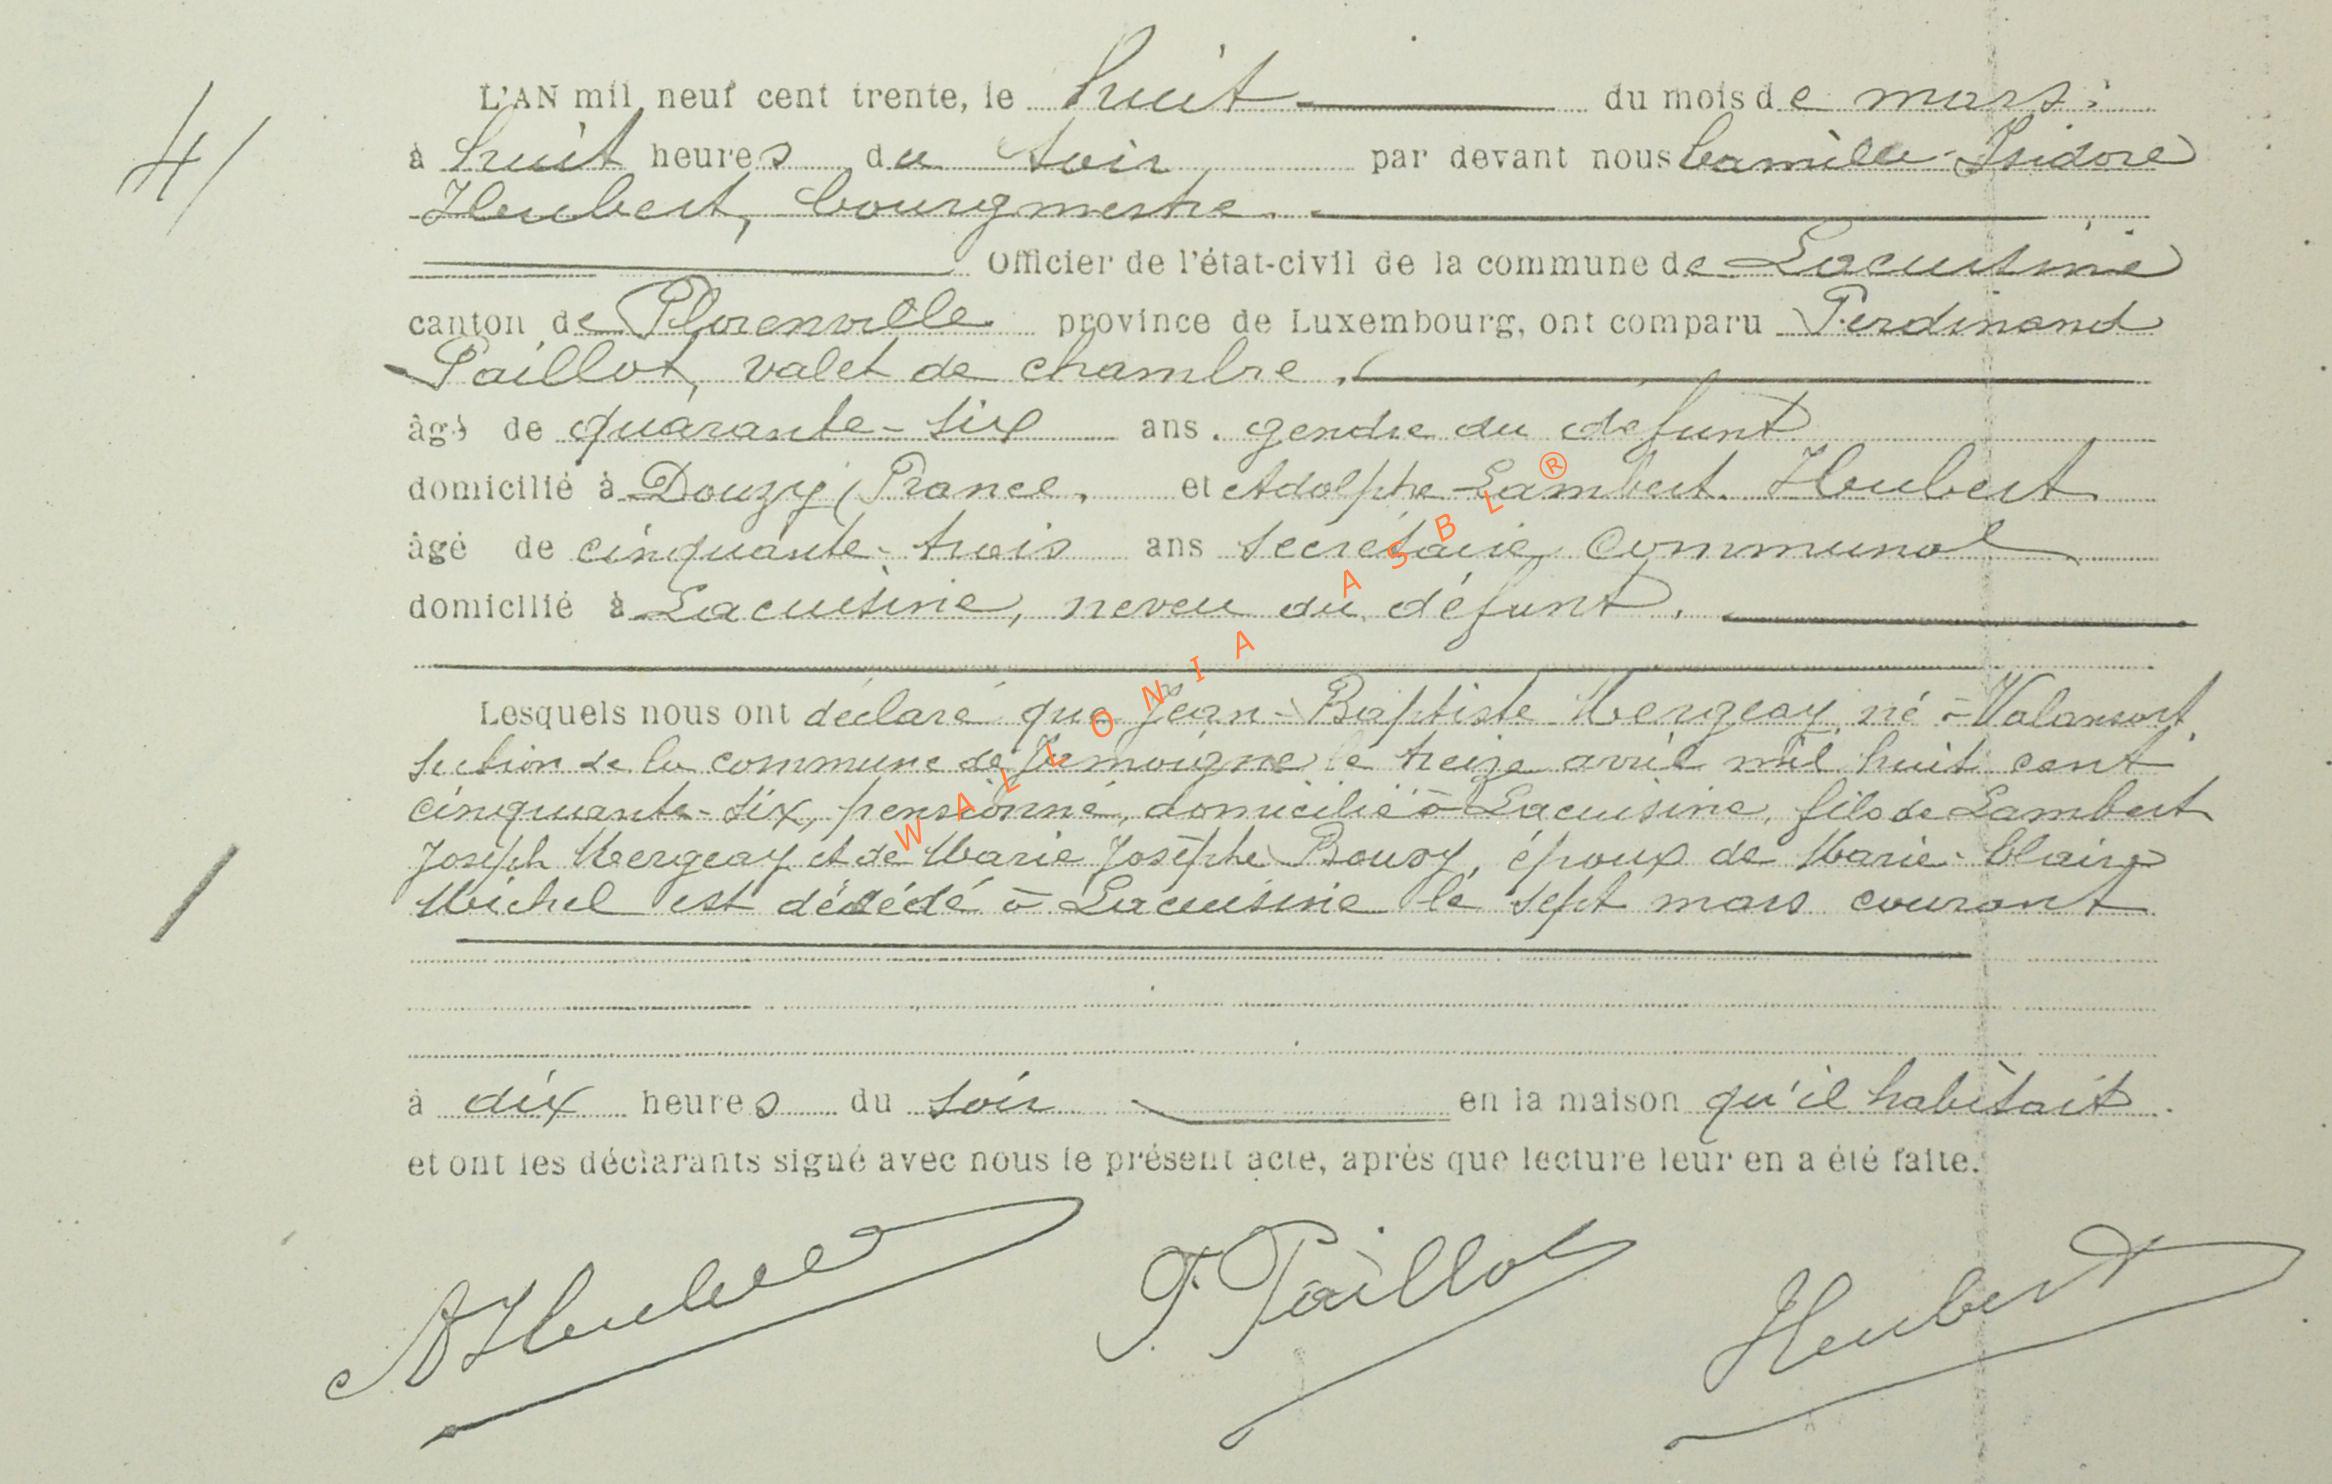 4/
L'AN mil neuf cent trente, le huit du mois de mars
à huit heures du soir par devant nous Camille Isidore
Heubert, bourgmestre.
Officier de l'état-civil de la commune de Lacuisine
canton de Florenville province de Luxembourg, ont comparu Ferdinand
Paillot, valet de chambre,
âgé de quarante-six ans. gendre du defunt
domicilié à Douzy, France, et Adolphe Lambert Heubert
âgé de cinquante-trois ans secrétaire communal
domicilié à Lacuisine, neveu du défunt.
Lesquels nous ont déclaré que Jean-Baptiste Mergeay né à Valansart
section de la commune de Jamoigne le treize avril mil huit cent
cinquante-six, pensionné, domicilié à Lacuisine, fils de Lambert
Joseph Mergeay et de Marie Josèphe Bouvy, époux de Marie-Claire
Michel est décédé à Lacuisine le sept mars courant
à dix heures du soir en la maison qu'il habitait
et ont les déclarants signé avec nous le présent acte, après que lecture leur en a été faite.
A Heubert F. Paillot Heubert
WALLONIA ASBL ®